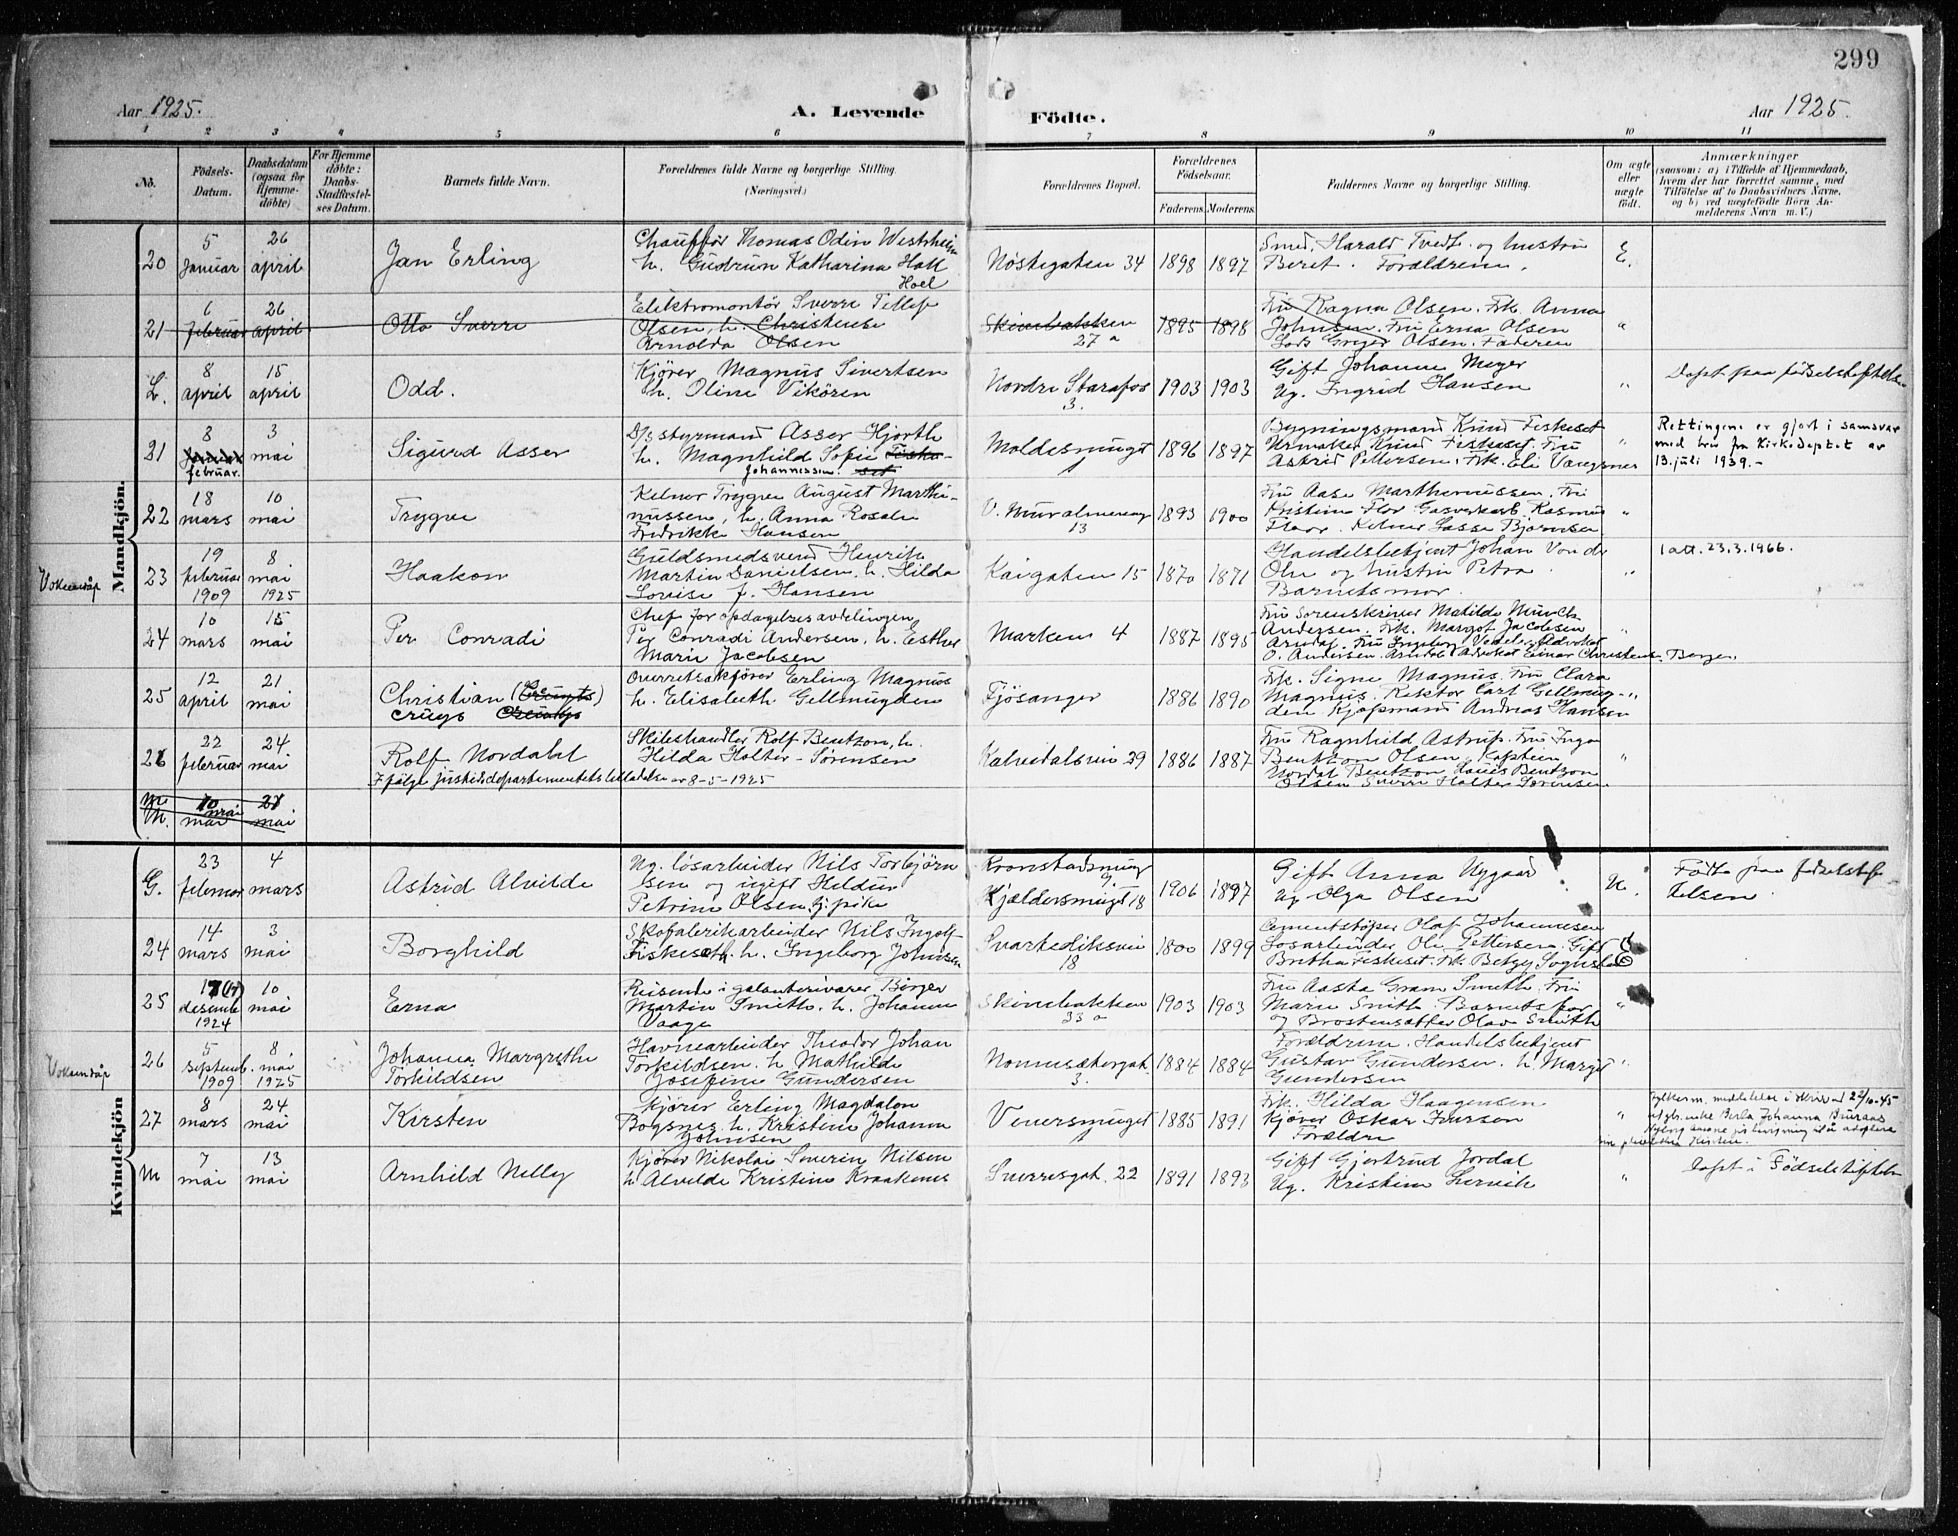 299
Aar 1925. A. Levende Födte. Aar 1925
1 2 3 4 5 6 7 8 9 10 11
No. Fødsels-Datum. Daabsdatum (ogsaa for Hjemme-døbte) For Hjemme døbte: Daabs-Stadfæstel-ses Datum. Barnets fulde Navn. Forældrenes fulde Navne og borgerlige Stilling. (Næringsvei.) Forældrenes Bopæl. Forældrenes Fødselsaar. Faderens. Moderens. Faddernes Navne og borgerlige Stilling. Om ægte eller uægte født. Anmærkninger (saasom: a) i Tilfælde af Hjemmedaab, hvem der har forrettet samme, med Tilføielse af to Daabsvidners Navne, og b) ved uægtefødte Börn An-melderens Navn m. V.)
Mandkjön.
20 5 januar 26 april Jan Erling
Chauffør Thomas Odin Westrheim
h. Gudrun Katharina Hall
Hoel
Nøstegaten 34 1898 1897
Smed Harald Tvedt og hustru
Beret. Forældrene.
E.
21 6 februar 26 april Otto Sverre
Elektromontør Sverre Tellef
Olsen, h. Christense
Arnolda Olsen
Skivebakken 27 a 1895 1898
Fru Ragna Olsen. Frk. Anna
Johnsen. Fru Erna Olsen
Olsen. Faderen
"
L. 8 april 15 april Odd.
Kjører Magnus Sivertsen
h. Oline Vikören
Nordre Starafos 3. 1903 1903
Gift Johanne Meyer
Ug. Ingrid Hansen
"
Døpt paa fødselstiftels.
21 8 februar. 3 mai Sigurd Asser
D/s styrmand Asser Hjorth
h. Magnhild Sofie Fiske-
Johannessen. set
Moldesmuget 1896 1897
Bygningsmand Knud Fiskeset
Urmaker Knud Fiskeset. Fru
Astrid Pettersen. Frk. Eli Vangsnes
"
Rettingene er gjort i samsvar
med brev fra Kirkedeptet av
13. juli 1939.-
22 18 mars 10 mai Trygve
Kelner Trygve August Marthi-
nussen, h. Anna Rosalie
Fredrikke Hansen
Ø. Muralmenning 13 1893 1900
Fru Aase Marthinussen. Fru
Kristine Flor Gasverkarb. Rasmus
Floor. Kelner Lasse Bjørnsen
"
Voksendåp 23 19 februar 1909 8 mai 1925 Haakon
Guldsmedsvend Henrik
Martin Danielsen. h. Hilda
Lovise f. Hansen
Kaigaten 15 1870 1871
Handelsbetjent Johan Von der
Ohe og hustru Petra.
Barnets mor.
"
1 att. 23.3.1966.
24 10 mars 15 mai Per Conradi
Chef for opdagelsesavdelingen
Per Conradi Andersen, h. Esther
Marie Jacobsen
Marken 4 1887 1895
Fru Sorenskriver Matilde Münch
Andersen. Frk. Margot Jacobsen
Arndal. Fru Ingeborg Vedeler. Advokat
O. Andersen. Arndal. Advokat Einar Christens. Bergen
"
25 12 april 21 mai Christian
Crugs
Overretssakfører Erling Magnus
h. Elisabeth Gellmuyden
Fjösanger 1886 1890
Frk. Signe Magnus. Fru Clara
Magnus. Rektor Carl Gellmuy-
den Kjøpmand Andreas Hansen
"
26 22 februar 24 mai Rolf Nordahl
Skibshandler Rolf Bentzon, h.
Hilda Holter-Sørensen
Ifølge justisdepartementets tilladelse av 8-5-1925
Kalvedalsvei 29 1886 1887
Fru Ragnhild Astrup. Fru Inga
Bentzon Olsen. Kaptein
Nordal Bentzon. Louis Bentzon
Olsen Sverre Holter Sørensen.
"
M. 10 mai 21 mai
Kvindekjön
G. 23 februar 4 mars Astrid Alvilde
Ug. løsarbeider Nils Torbjörn
sen og ugift Hildur
Petrine Olsen
Kronstadsmug
Kjældersmuget 18 1906 1897
Gift Anna Nygaard
Ug Olga Olsen
U.
Födt paa fødselstif-
telsen
24 14 mars 3 mai Borghild
Skofabrikarbeider Nils Ingolf
Fiskeseth. h. Ingeborg Johnsen
Svartediksvei 18 1800 1899
Cementstøper Olaf Johannesen
Løsarbeider Ole Pettersen. Gift
Britha Fiskeset. Frk. Betzy
E
25 desemb. 1924 10 mai Erna
Reisende i galanterivarer Birger
Martin Smith. h. Johanne
Vaage
Skivebakken 33 a 1903 1903
Fru Aasta Gram Smith. Fru
Marie Smith. Barnets far
og Brostensætter Olav Smith
"
Voksendåp 26 5 septemb. 1909 8 mai 1925 Johanna Margrethe
Torkildsen
Havnearbeider Theodor Johan
Torkildsen. h. Mathilde
Josefine Gundersen
Nonnesætergat. 3. 1884 1884
Forældrene. Handelsbetjent
Gustav Gundersen. h. Margit
Gundersen
"
27 8 mars 24 mai Kirsten
Kjører Erling Magdalon
Bogsnes. h. Kristine Johanne
Johnsen
Veversmuget 1885 1891
Frk. Hilda Haagensen
Kjører Oskar Iversen
Forældre
"
Fylkesm. meddelelse i skriv av 22/10-45
Johanna
Kirsten.
M 7 mai 13 mai Arnhild Nelly
Kjører Nikolai Severin Nilsen
h Alvilde Kristine Kraakenes
Sverresgat. 22 1891 1893
Gift Gjertrud Jordal
Ug. Kristine Lervik
"
Døpt i Fødselstiftelsen